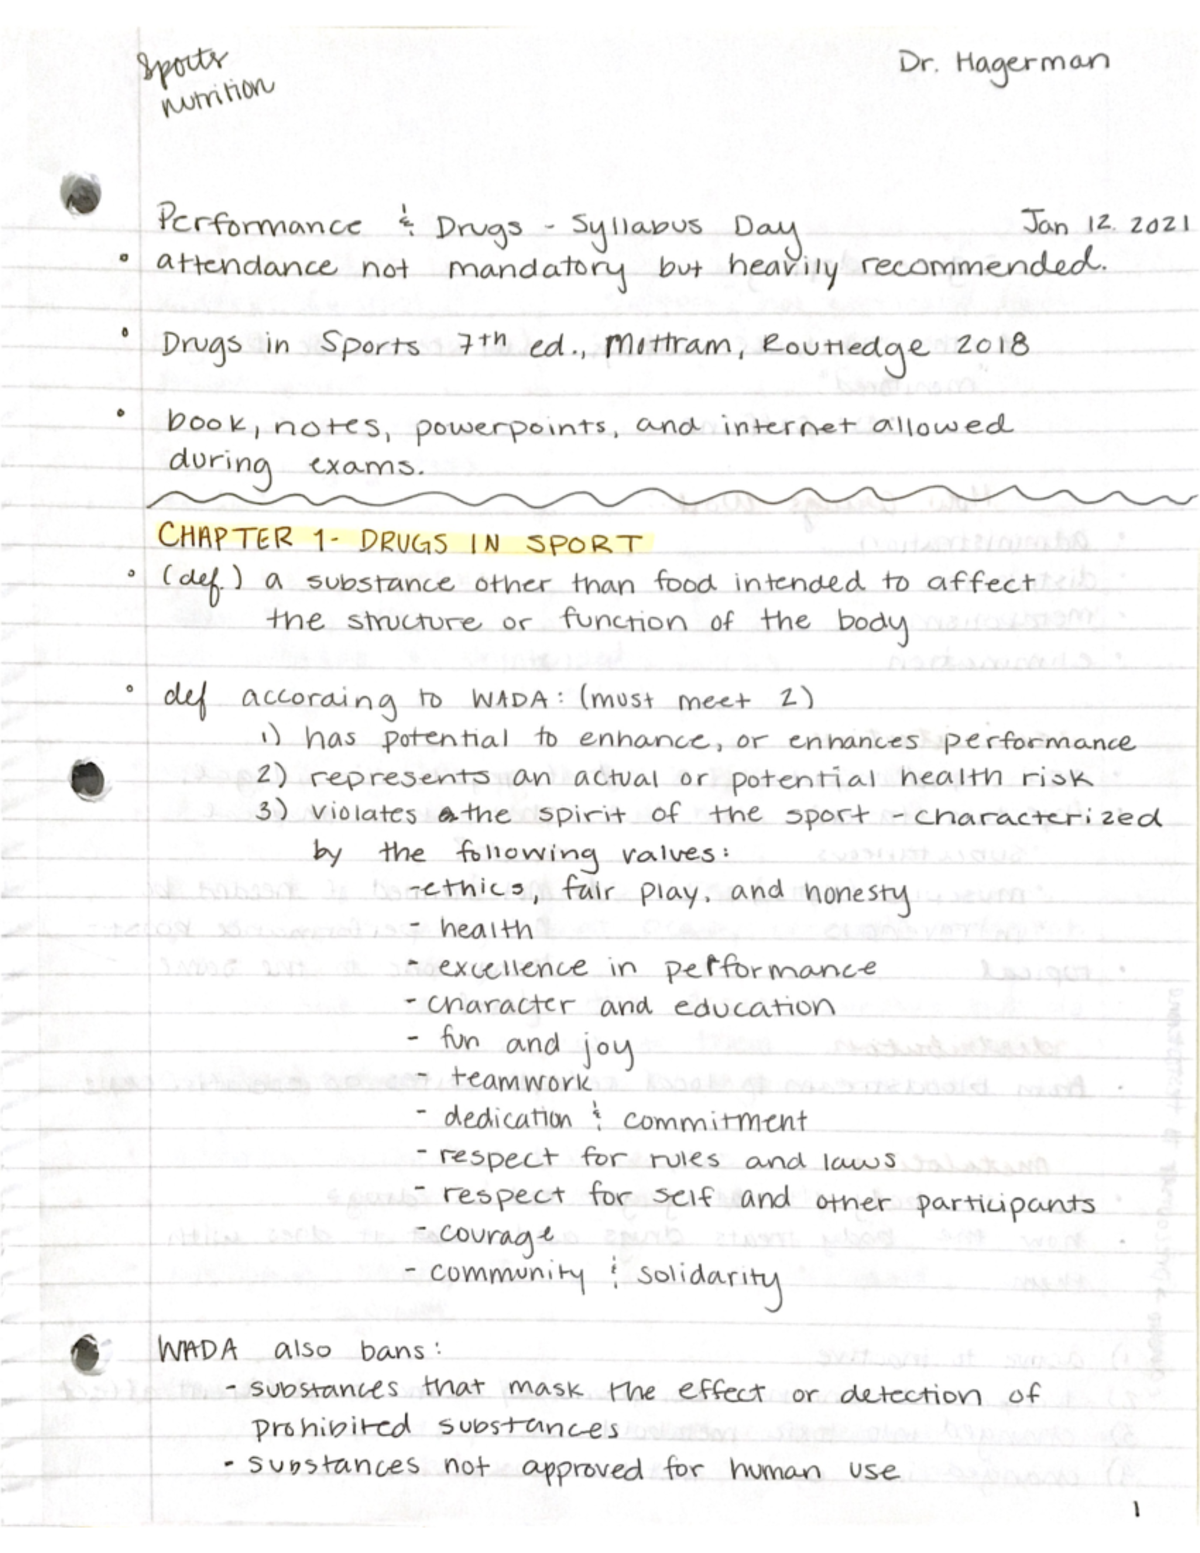 Sports
nutrition
Dr. Hagerman
Performance & Drugs - Syllabus Day Jan 12. 2021
• attendance not mandatory but heavily recommended.
• Drugs in Sports 7th ed., Mottram, Routledge 2018
• book, notes, powerpoints, and internet allowed
during exams.
CHAPTER 1- DRUGS IN SPORT
• (def.) a substance other than food intended to affect
the structure or function of the body
• def according to WADA: (must meet 2)
1) has potential to enhance, or enhances performance
2) represents an actual or potential health risk
3) violates the spirit of the sport - characterized
by the following values:
-ethics, fair play, and honesty
- health
- excellence in performance
- character and education
- fun and joy
- teamwork
- dedication & commitment
- respect for rules and laws
- respect for self and other participants
- courage
- community & solidarity
WADA also bans:
- substances that mask the effect or detection of
prohibited substances
- substances not approved for human use
1